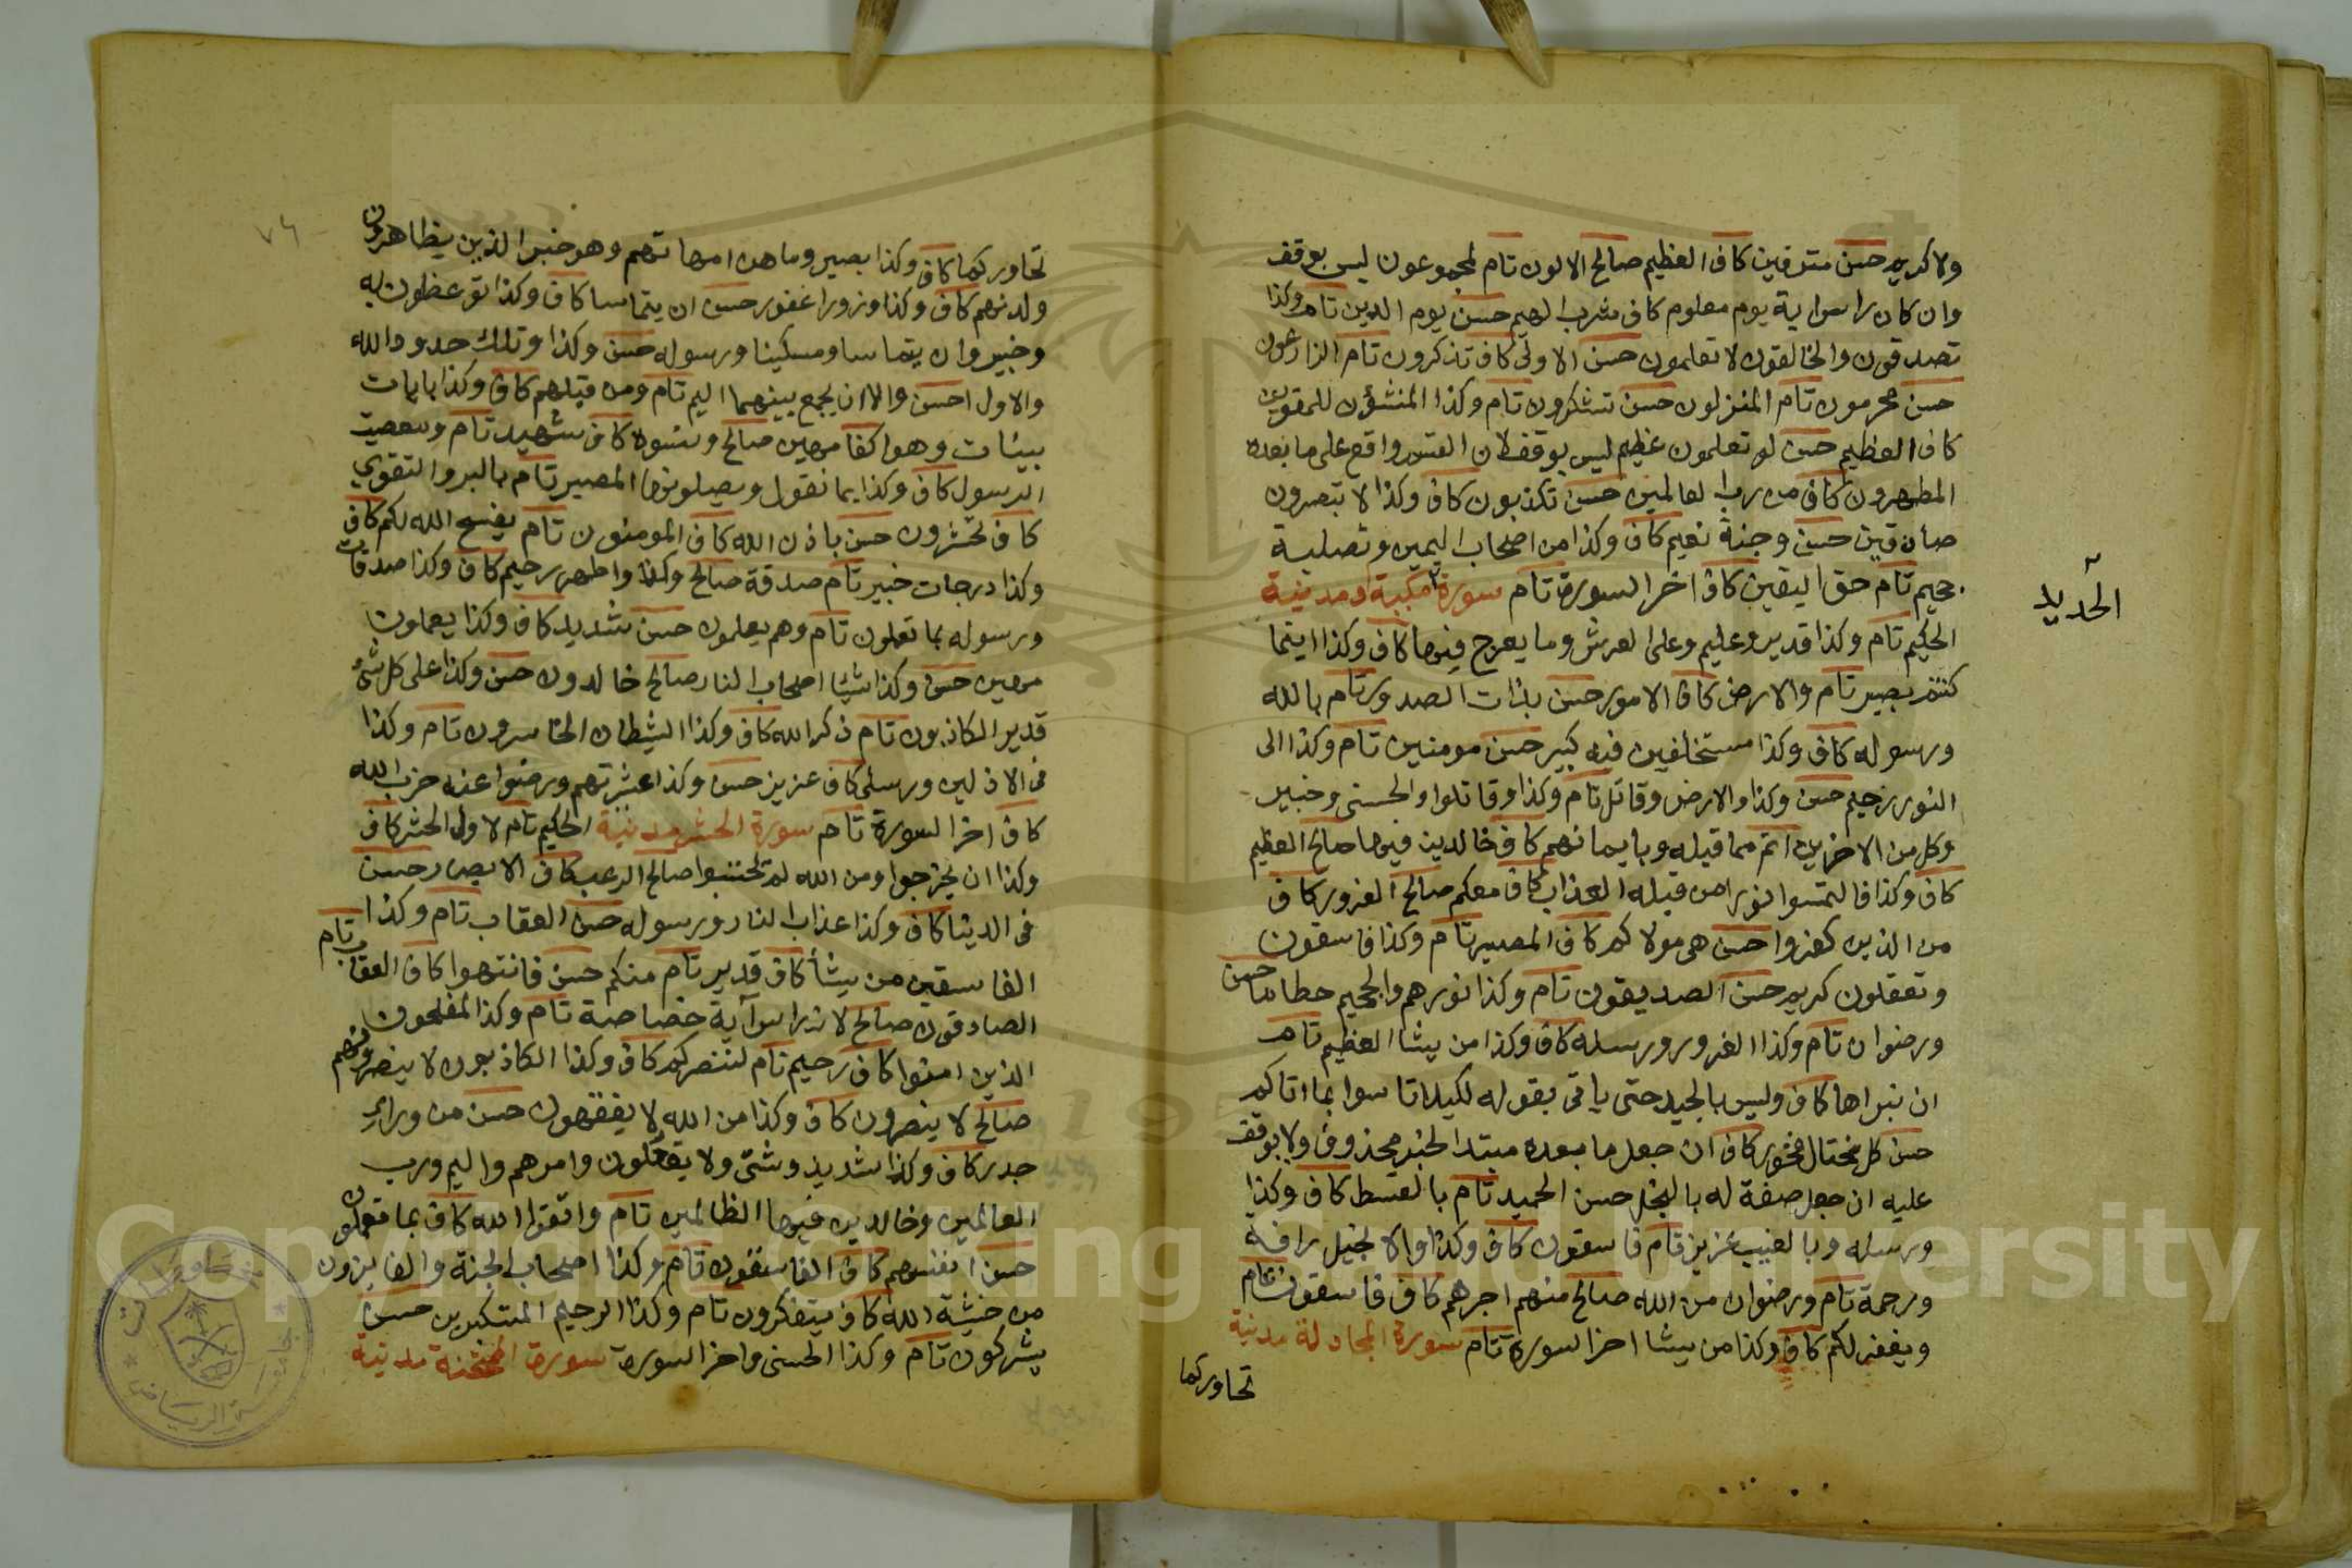 ولا كريم حسن مترفين كاف العظيم صالح الاولون تام لمجموعون ليس بوقف
وان كان راس اية يوم معلوم كاف شرب الهيم حسن يوم الدين تام وكذا
تصدقون والخالقون لا تعلمون حسن الاولى كاف تذكرون تام الزارعون
حسن محرمون تام المنزلون حسن تشكرون تام وكذا المنشؤن للمقوين
كاف العظيم حسن لو تعلمون عظيم ليس بوقف لان القسم واقع على ما بعده
المطهرون كاف من رب العالمين حسن تكذبون كاف وكذا لا تبصرون
صادقين حسن وجنة نعيم كاف وكذا من اصحاب اليمين وتصلية
جحيم تام حق اليقين كاف اخر السورة تام سورة مكية او مدنية
الحديد
الحكيم تام وكذا قدير وعليم وعلى العرش وما يعرج فيها كاف وكذا اينما
كنتم بصير تام والارض كاف الامور حسن بذات الصدور تام بالله
ورسوله كاف وكذا مستخلفين فيه كبير حسن مومنين تام وكذا الى
النور رحيم حسن وكذا والارض وقاتل تام وكذا وقاتلوا والحسنى وخبير
وكل من الاخرين اتم مما قبله وبايمانهم كاف خالدين فيها صالح العظيم
كاف وكذا فالتمسوا نورا من قبله العذاب كاف معكم صالح الغرور كاف
من الذين كفروا حسن هي مولاكم كاف المصير تام وكذا فاسقون
وتعقلون كريم حسن الصديقون تام وكذا نورهم والجحيم حطاما حسن
ورضوان تام وكذا الغرور ورسله كاف وكذا من يشا العظيم تام
ان نبراها كاف وليس بالجيد حتى ياتى بقوله لكيلا تاسوا بما اتاكم
حسن كل مختال فخور كاف ان جعل ما بعده مبتدا لخبر محذوف ولا يوقف
عليه ان جعل صفة له بالبخل حسن الحميد تام بالقسط كاف وكذا
ورسله وبالغيب عزيز تام فاسقون كاف وكذا والانجيل رافة
ورحمة تام ورضوان من الله صالح منهم اجرهم كاف فاسقون تام
ويغفر لكم كاف وكذا من يشا اخر السورة تام سورة المجادلة مدنية
تحاوركما
٧٦
تحاوركما كاف وكذا بصير وما هن امهاتهم وهو خبر الذين يظاهرون
ولدنهم كاف وكذا وزورا غفور حسن ان يتماسا كاف وكذا توعظون به
وخبير وان يتماسا ومسكينا ورسوله حسن وكذا وتلك حدود الله
والاول احسن والا ان يجمع بينهما اليم تام ومن قبلهم كاف وكذا بايات
بينات وهو اكفا مهين صالح ونسوه كاف شهيد تام ومعصيت
الرسول كاف وكذا بما نقول ويصلونها المصير تام بالبر والتقوي
كاف تحشرون حسن باذن الله كاف المومنون تام يفسح الله لكم كاف
وكذا درجات خبير تام صدقة صالح وكذا واطهر رحيم كاف وكذا صدقات
ورسوله بما تعملون تام وهم يعلمون حسن شديد كاف وكذا يعملون
مهين حسن وكذا شيئا اصحاب النار صالح خالدون حسن وكذا على كل شئ
قدير الكاذبون تام ذكر الله كاف وكذا الشيطان الخاسرون تام وكذا
فى الاذلين ورسلى كاف عزيز حسن وكذا عشيرتهم ورضوا عنه حزب الله
كاف اخر السورة تام سورة الحشر مدنية الحكيم تام لاول الحشر كاف
وكذا ان يخرجوا ومن الله لم يحتسبوا صالح الرعب كاف الابصار حسن
فى الدنيا كاف وكذا عذاب النار ورسوله حسن العقاب تام وكذا
الفاسقين من يشأ كاف قدير تام منكم حسن فانتهوا كاف العقاب تام
الصادقون صالح لانه راس آية خصاصة تام وكذا المفلحون
الذين امنوا كاف رحيم تام لننصركم كاف وكذا الكاذبون لا ينصرونهم
صالح لا ينصرون كاف وكذا من الله لا يفقهون حسن من وراء
جدر كاف وكذا شديد وشتى ولا يعقلون وامرهم واليم ورب
العالمين وخالدين فيها الظالمين تام واتقوا الله كاف بما تعملون
حسن انفسهم كاف الفاسقون تام وكذا اصحاب الجنة والفايزون
من خشية الله كاف يتفكرون تام وكذا الرحيم المتكبرين حسن
يشركون تام وكذا الحسنى واخر السورة سورة الممتحنة مدنية
Copyright © King Saud University